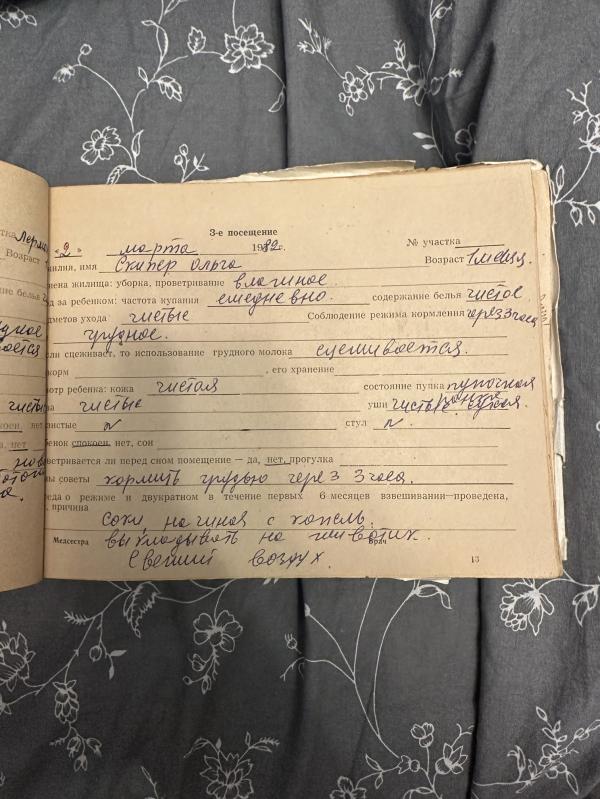 3-е посещение
«2» марта 1982г. № участка
милия, имя Скипер Ольга Возраст 1 месяц.
иена жилища: уборка, проветривание влажное.
д за ребенком: частота купания ежедневно. содержание белья чистое
дметов ухода чистые Соблюдение режима кормления через 3 часа
грудное.
сли сцеживает, то использование грудного молока сцеживается.
корм , его хранение
отр ребенка: кожа чистая состояние пупка пупочная
ва чистые уши чистые. ранка сухая.
истые N стул N.
бенок спокоен, нет, сон
оветривается ли перед сном помещение — да, нет, прогулка
ны советы кормить грудью через 3 часа.
седа о режиме и двукратном в течение первых 6 месяцев взвешивании—проведена,
причина
соки, начиная с капель.
Медсестра выкладывать на животик. Врач
Свежий воздух.
13
тка
Возраст
ние белья
чисты
коен, нет
а, нет